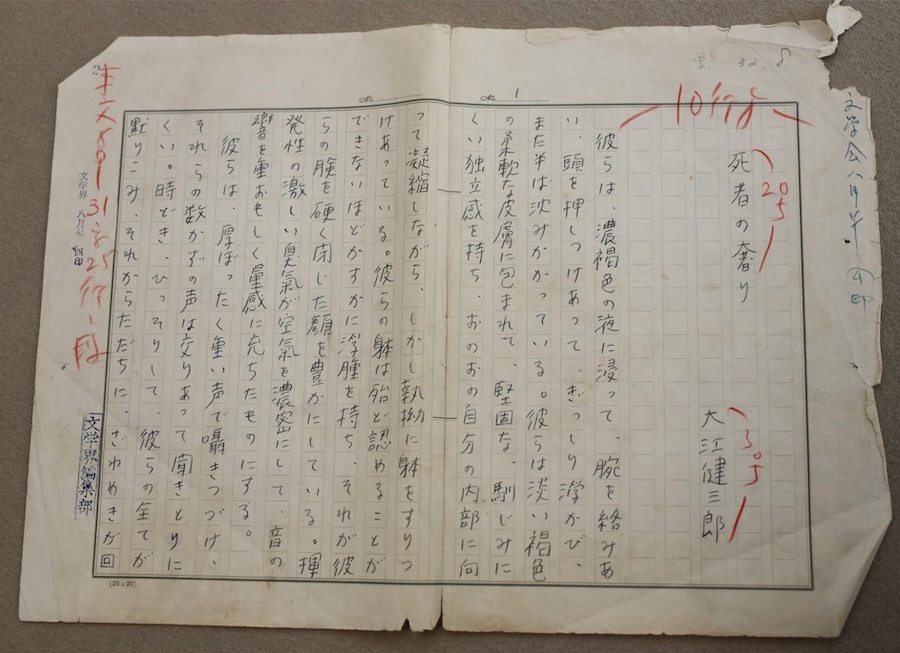 文学会八月号
32. 8
No. 1
No.
10行
死者の奢り
大江健三郎
彼らは、濃褐色の液に浸って、腕を絡みあ
い、頭を押しつけあって、ぎっしり浮かび、
また半ば沈みかかっている。彼らは淡い褐色
の柔軟な皮膚に包まれて、堅固な、馴じみに
くい独立感を持ち、おのおの自分の内部に向
って凝縮しながら、しかし執拗に躰をすりつ
けあっている。彼らの躰は殆ど認めることが
できないほどかすかに浮腫を持ち、それが彼
らの瞼を硬く閉じた顔を豊かにしている。揮
発性の激しい臭氣が空氣を濃密にして、音の
響を重おもしく量感に充ちたものにする。
彼らは、厚ぼったく重い声で囁きつづけ、
それらの数かずの声は交りあって聞きとりに
くい。時どき、ひっそりして、彼らの全てが
黙りこみ、それからただちに、ざわめきが回
(20×20)
文学界編集部
文学界 八月号